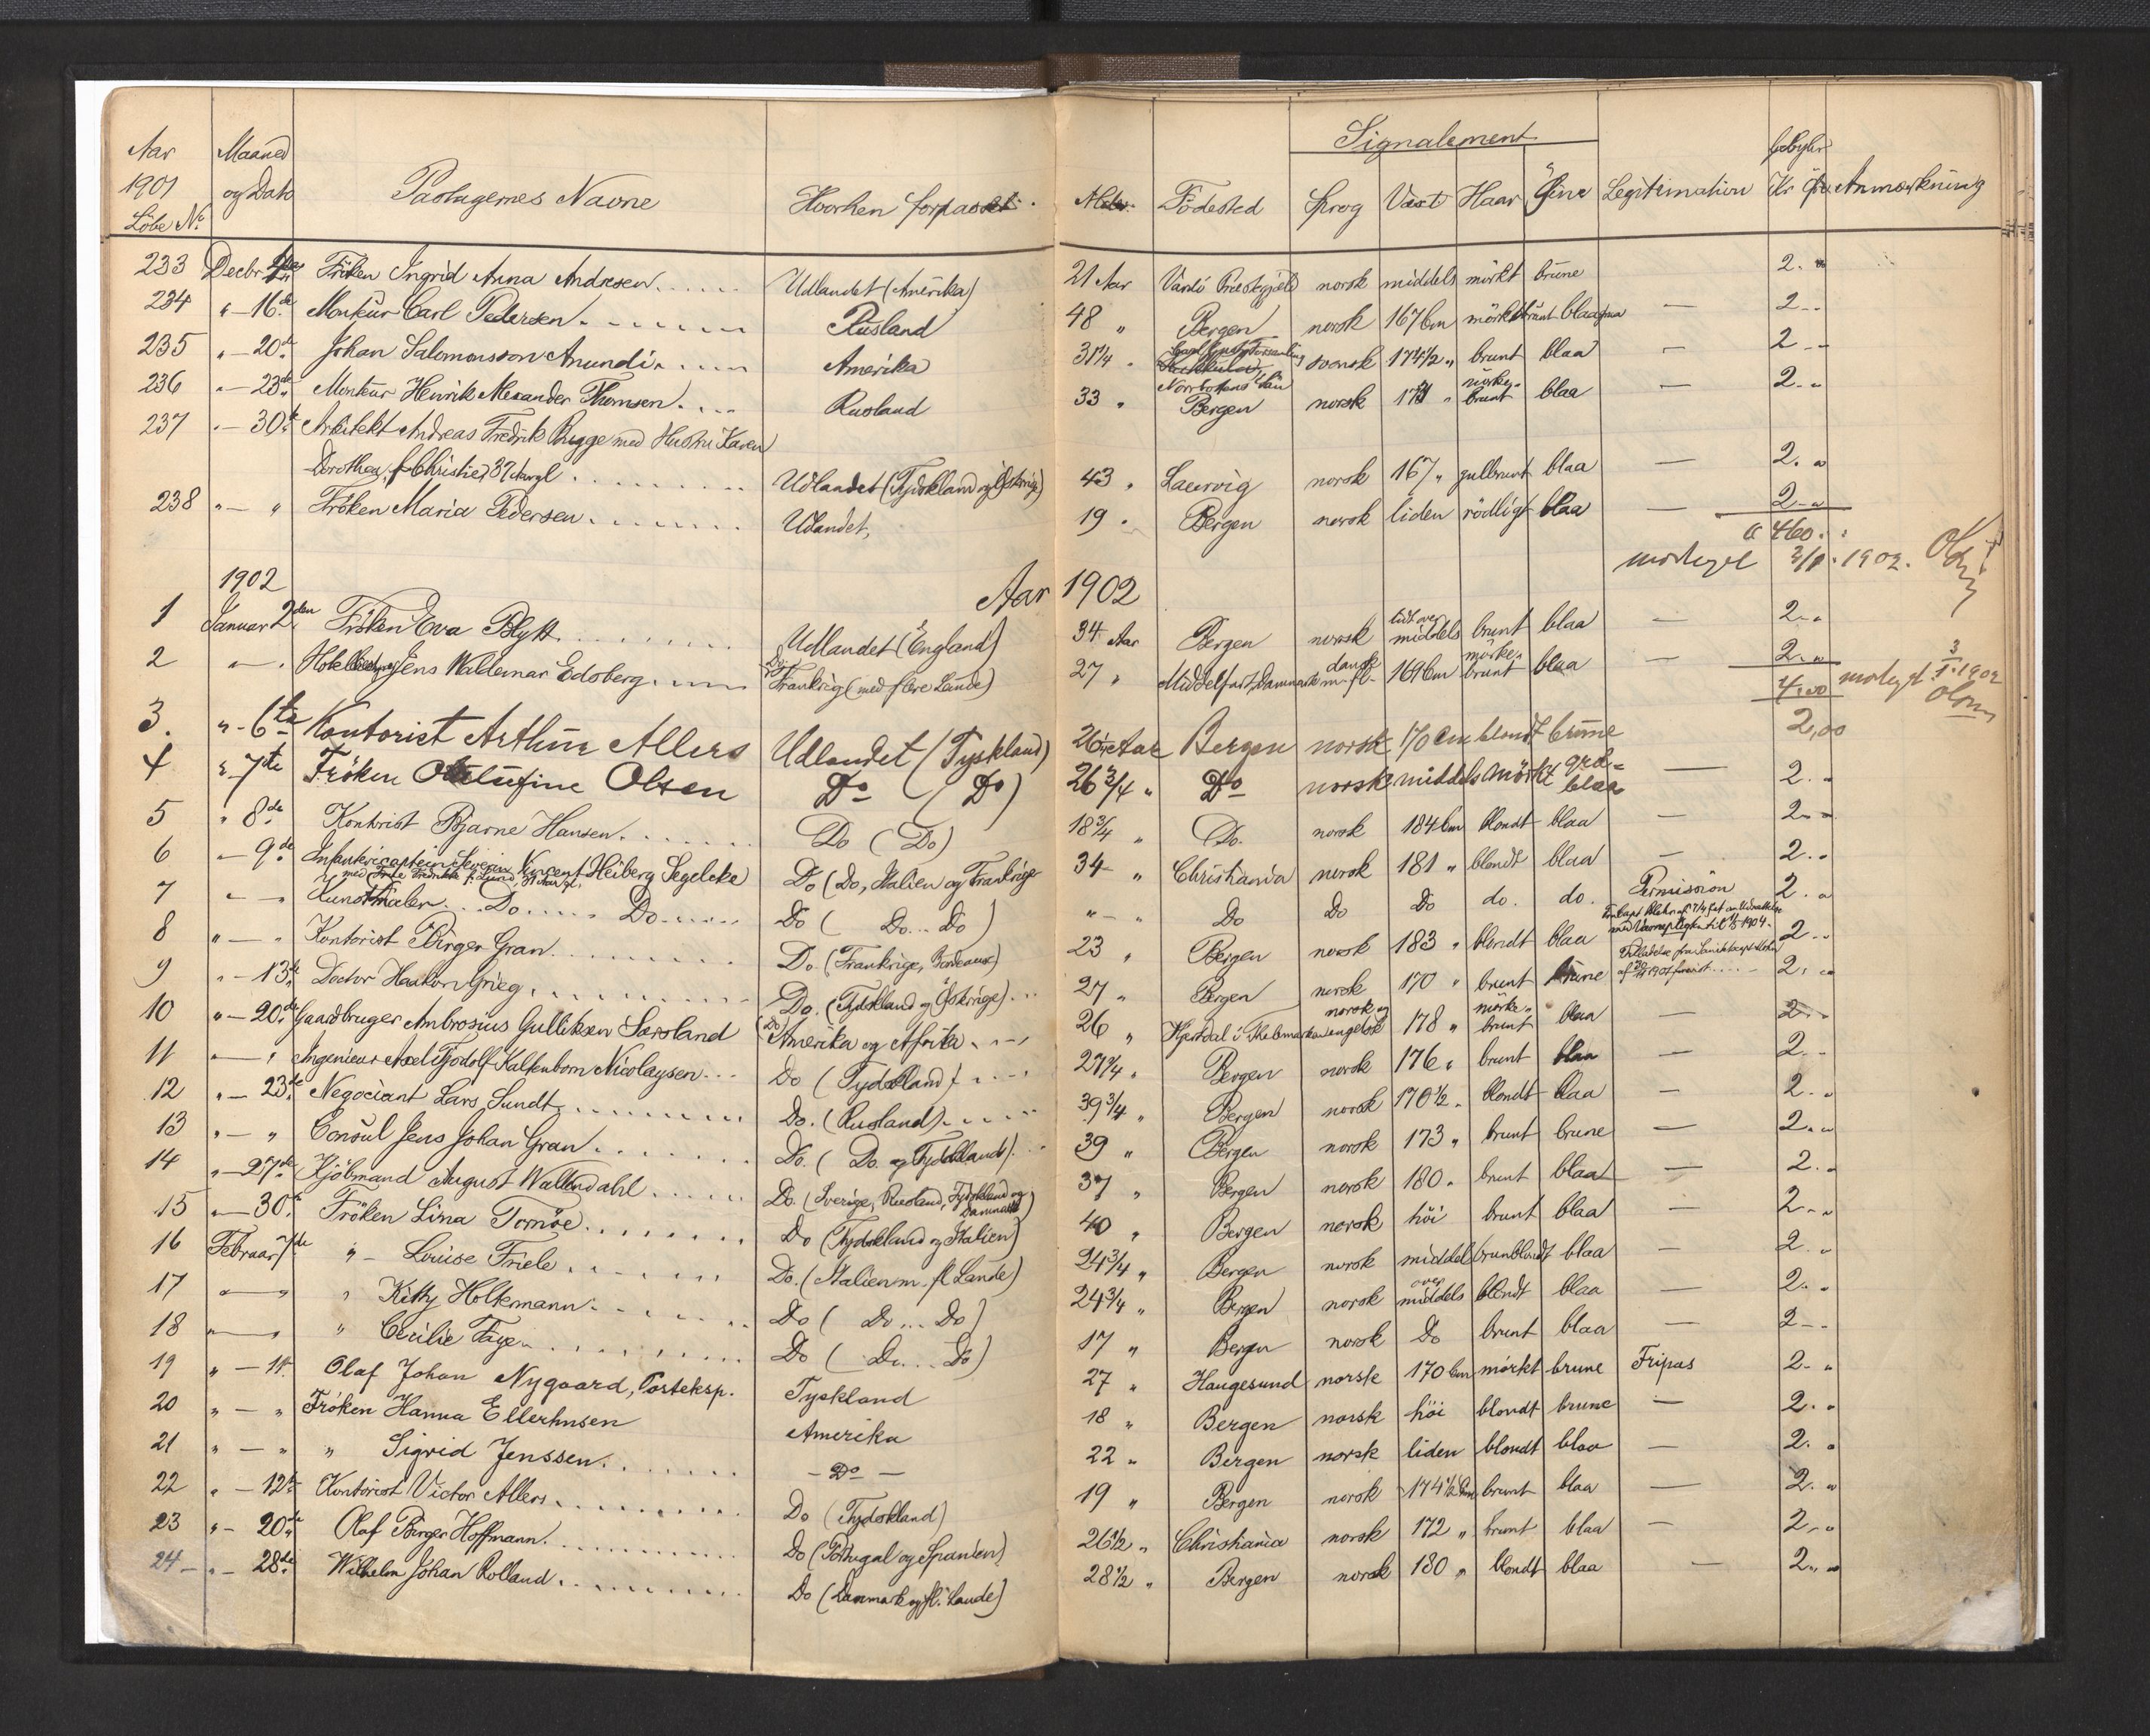 Signalement
Aar Maaned Gebyhr
1901 og Dato Pastagernes Navne Hvorhen forpasset Alder Födested Sprog Vext Haar Öine Legitimation Kr Öre Anmærkning
Löbe No
233 Decbr Fröken Ingrid Anna Andresen Udlandet (Amerika) 21 Aar Vardö Præstegjeld norsk middels mörkt brune 2. "
234 " — 16de Monteur Carl Pedersen Rusland 48 " Bergen norsk 167 Cm mörkbrunt blaa — 2 - -
235 " — 20de Johan Salomonsson Anundi Amerika 31 1/4 " Norrbottens Län svensk 174 1/2 " brunt blaa — 2 - "
236 " — 23de Monteur Henrik Alexander Thomsen Rusland 33 " Bergen norsk 171 " mörke- brunt blaa — 2 - "
237 " — 30te Arkitekt Andreas Fredrik Bugge med Hustru Karen
Dorothea, f. Christie, 37 Aar gl Udlandet (Tydskland og Östrige) 43 " Laurvig norsk 167 " gulbrunt blaa — 2. "
238 " — " Fröken Maria Pedersen Udlandet, 19 " Bergen norsk liden rödligt blaa — 2 - "
460
modtaget 3/1 1902.
1902 Aar 1902
1 Januar 2den Fröken Eva Blytt Udlandet (England) 34 Aar Bergen norsk lidt over middels brunt blaa — 2 - "
2 " — " Jens Waldemar Edsberg Do Frankrig (med flere Lande) 27 " Middelfart, Danmark dansk m. fl. 169 Cm mörke- brunt blaa — 2 - "
4.00 modtaget 3/1 1902
3. " - 6te Kontorist Arthur Allers Udlandet (Tyskland) 26 Aar Bergen norsk 170 Cm blondt brune 2,00
4 " 7de Fröken Olufine Olsen Do (Do) 26 3/4 " Do norsk middels mörkt graa- blaa — 2. "
5 " 8de Kontorist Bjarne Hansen Do (Do) 18 3/4 " Do. norsk 184 Cm blondt blaa — 2 - "
6 " — 9de Infantericaptein Severin Vincent Heiberg Segelcke Do (Do, Italien og Frankrige 34 " Christiania norsk 181 " blondt blaa — 2. "
med Frue Fredrikke f. Lund, 31 Aar gl.
7 " — " Kunstmaler Do Do Do (Do... Do) " — " Do Do Do do. do. Permission 2. "
8 " — " Kontorist Birger Gran Do. (Frankrige, Bordeaux) 23 " Bergen norsk 183 " blondt blaa 2 - -
9 " — 13de Doctor Haakon Grieg Do. (Tydskland og Östrige) 27 " Bergen norsk 170 " brunt brune 2. "
10 " — 20de Gaardbruger Ambrosius Gulliksen Sørsland (Do) Amerika og Afrika 26 " Hjertdal i Thelemarken norsk og engelsk 178 " mörke- brunt blaa — 2 - -
11 " — " Ingenieur Axel Tjodolf Kaltenborn Nicolaysen Do (Tydskland) 27 1/4 " Bergen norsk 176 " brunt blaa — 2 -
12 " — 23de Negociant Lars Sundt Do. (Rusland) 39 3/4 " Bergen norsk 170 1/2 " blondt blaa — 2. "
13 " — " Consul Jens Johan Gran Do. (Do. og Tydskland) 39 " Bergen norsk 173 " brunt brune — 2. "
14 " — 27de Kjöbmand August Wallendahl Do. (Sverige, Rusland, Tydskland og Danmark) 37 " Bergen norsk 180 " brunt blaa — 2. "
15 " — 30te Fröken Lina Tornöe Do (Tydskland og Italien) 40 " Bergen norsk höi brunt blaa — 2 - "
16 Februar 7de " - Louise Friele Do. (Italien m. fl Lande) 24 3/4 " Bergen norsk middels brunblondt blaa — 2 "
17 " — " " Kitty Holtermann Do (Do... Do) 24 3/4 " Bergen norsk over middels blondt blaa — 2. "
18 " — " " Cecilie Faye Do (Do... Do) 17 " Bergen norsk Do brunt blaa — 2 - -
19 " — 11te Olaf Johan Nygaard, Posteksp. Tyskland 27 " Haugesund norsk 170 Cm mörkt brune Fripas 2 - "
20 " — " Fröken Hanna Ellerhusen Amerika 18 " Bergen norsk höi blondt brune — 2. "
21 " — " " Sigrid Jenssen - Do - 22 " Bergen norsk liden blondt blaa — 2. "
22 " — 12te Kontorist Victor Allers Do (Tydskland) 19 " Bergen norsk 174 1/2 Cm brunt blaa — 2. "
23 " - 20de Olaf Birger Hoffmann Do (Portugal og Spanien) 26 1/2 " Christiania norsk 172 " brunt blaa — 2 - "
24 - " - 28de Wilhelm Johan Rolland Do (Danmark og fl. Lande) 28 1/2 " Bergen norsk 180 " blondt blaa — 2 - "